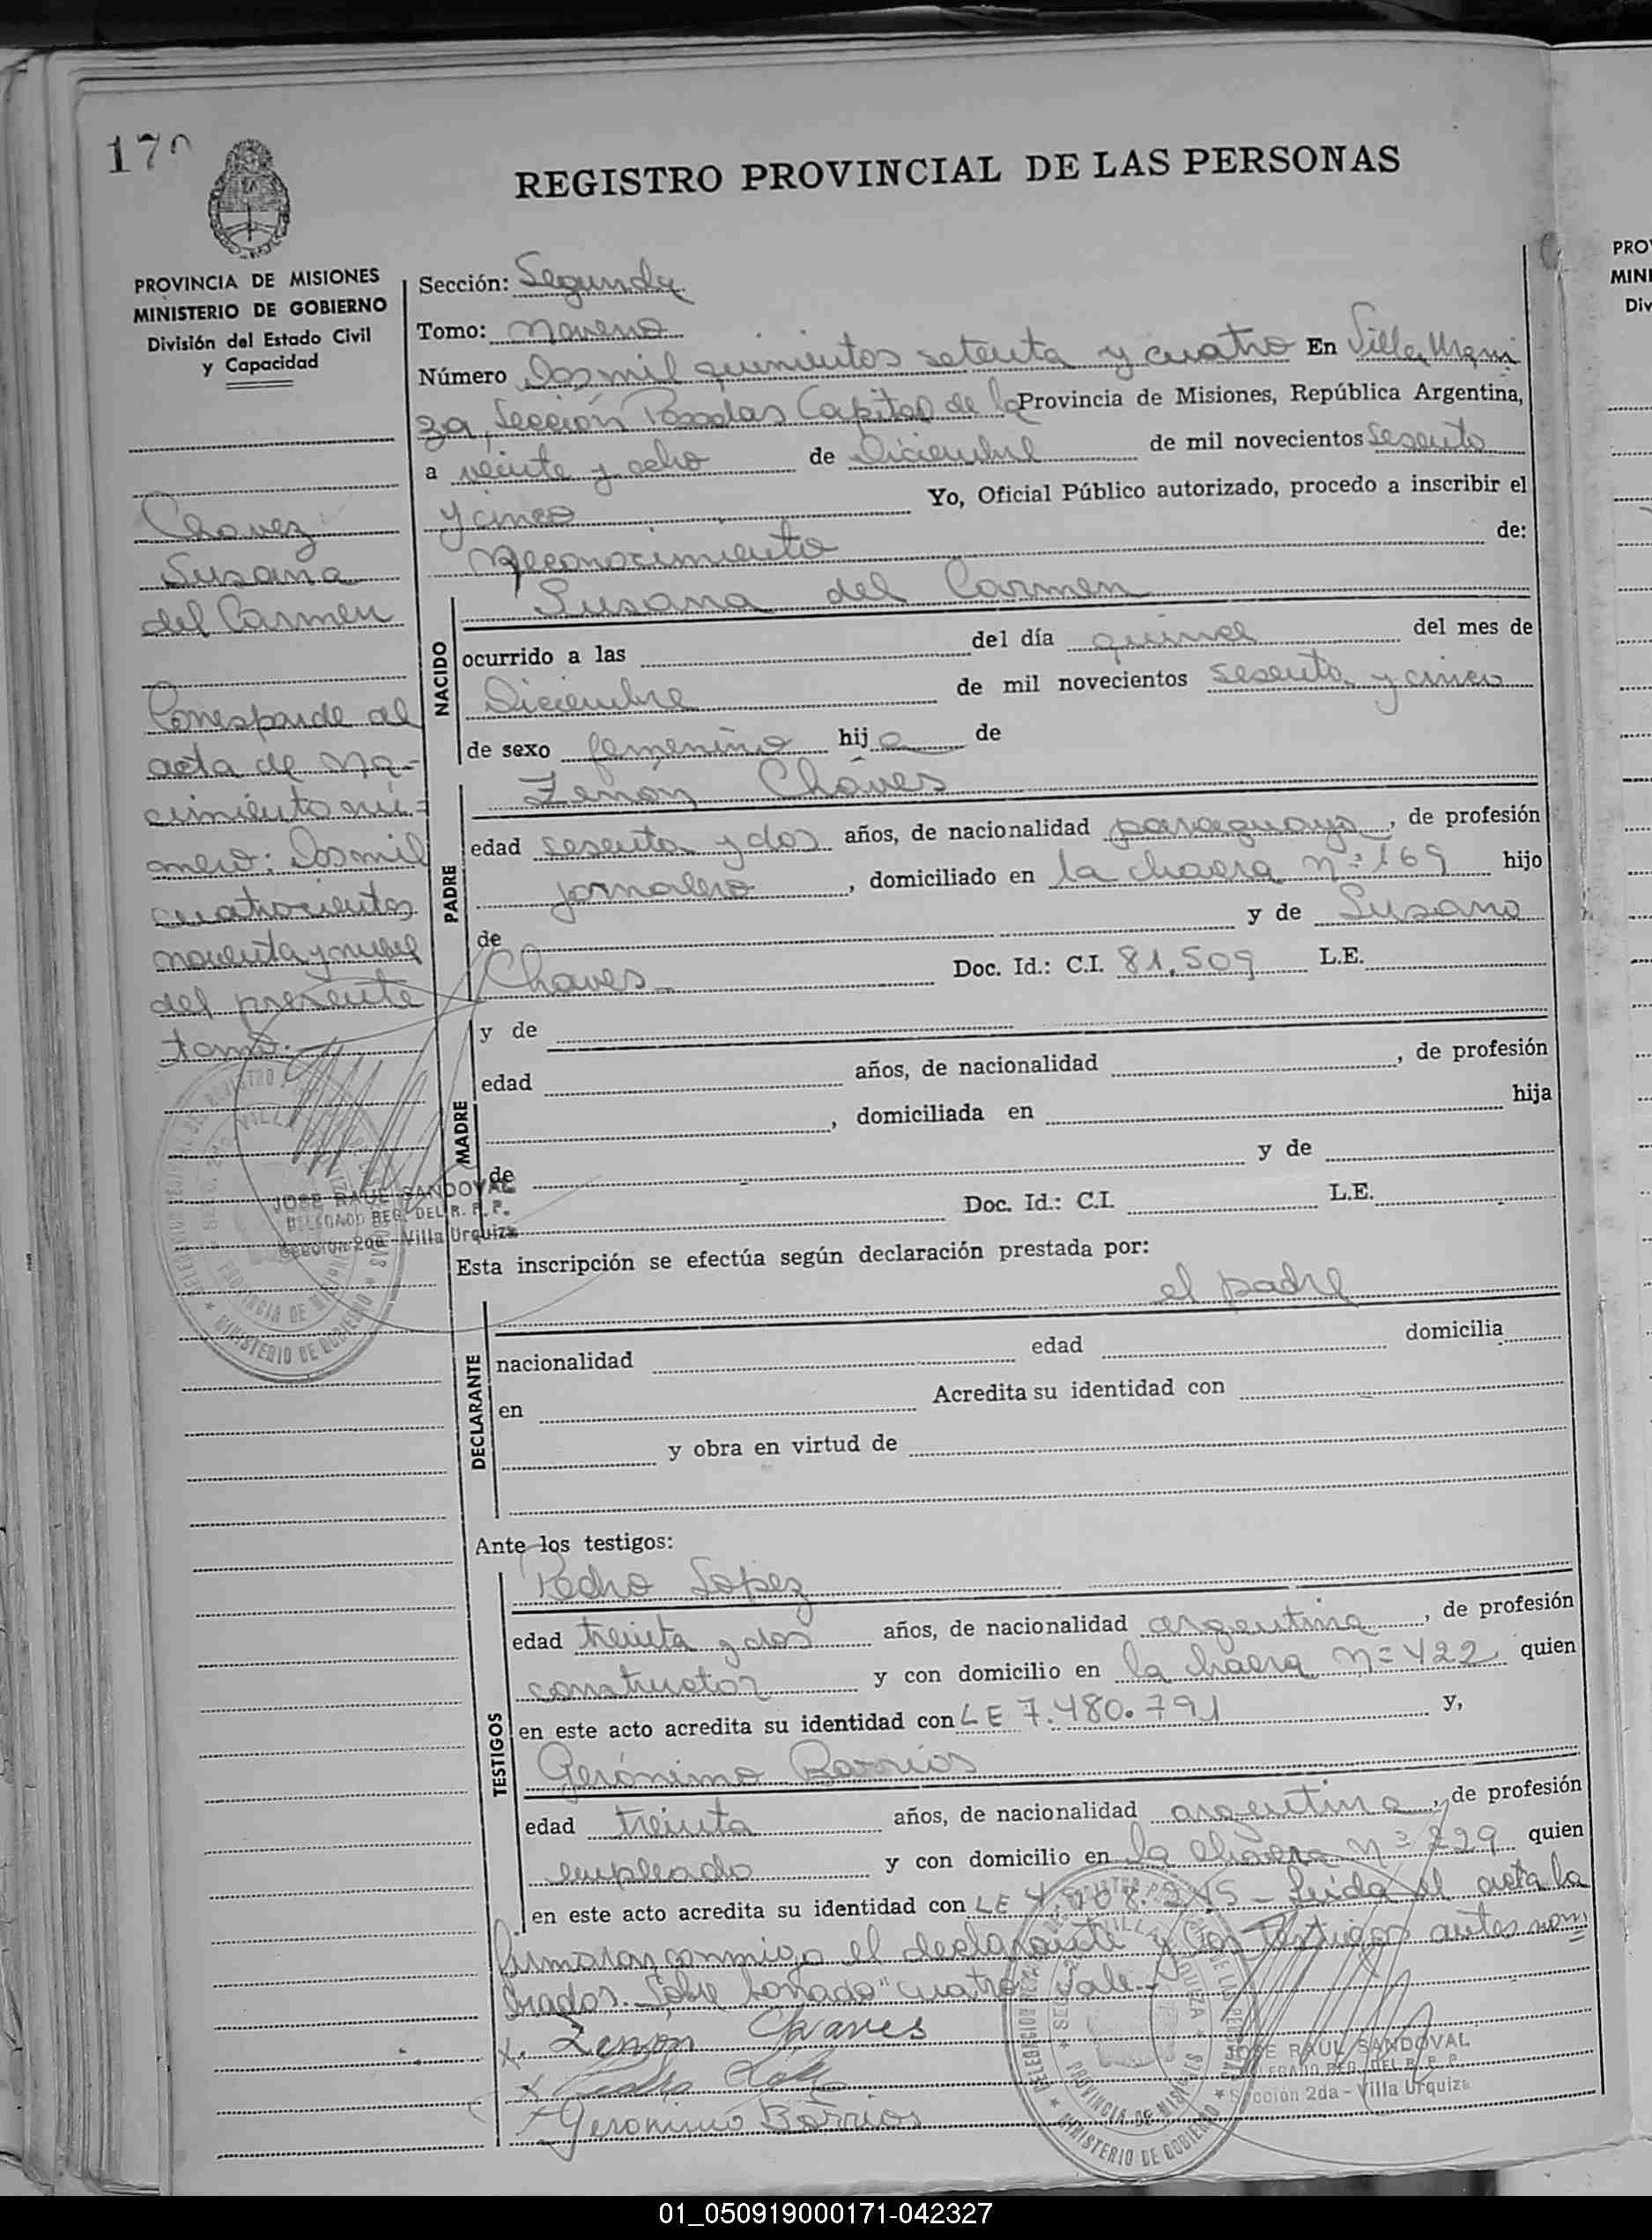 170
REGISTRO PROVINCIAL DE LAS PERSONAS
PROVINCIA DE MISIONES
MINISTERIO DE GOBIERNO
División del Estado Civil
y Capacidad
Chavez
Susana
del Carmen
Corresponde al
acta de na-
cimiento nú=
mero: Dos mil
cuatrocientos
noventa y nueve
del presente
tomo.
JOSE RAUL SANDOVAL
DELEGADO REG. DEL R. P. P.
Sección 2da - Villa Urquiza
Sección: Segunda
Tomo: noveno
Número Dos mil quinientos setenta y cuatro En Villa Urqui
za, Sección Posadas Capital de la Provincia de Misiones, República Argentina,
a veinte y ocho de Diciembre de mil novecientos sesenta
y cinco Yo, Oficial Público autorizado, procedo a inscribir el
Reconocimiento de:
NACIDO
Susana del Carmen
ocurrido a las del día quince del mes de
Diciembre de mil novecientos sesenta y cinco
de sexo femenino hija de
PADRE
Zenón Cháves
edad sesenta y dos años, de nacionalidad paraguaya, de profesión
jornalero, domiciliado en la chacra nº 169 hijo
de y de Susano
Chaves Doc. Id.: C.I. 81.509 L.E.
MADRE
y de
edad años, de nacionalidad , de profesión
, domiciliada en hija
de y de
Doc. Id.: C.I. L.E.
Esta inscripción se efectúa según declaración prestada por:
DECLARANTE
el padre
nacionalidad edad domicilia
en Acredita su identidad con
y obra en virtud de
Ante los testigos:
TESTIGOS
Pedro Lopez
edad treinta y dos años, de nacionalidad argentina, de profesión
constructor y con domicilio en la chacra n= 422 quien
en este acto acredita su identidad con LE 7.480.791 y,
Gerónimo Barrios
edad treinta años, de nacionalidad argentina, de profesión
empleado y con domicilio en la chacra nº 229 quien
en este acto acredita su identidad con LE Leida el acta la
firmaron conmigo el declarante y los testigos antes nom
brados. Sobre borrado "cuatro" vale.-
x. Zenón Chaves
x
x Geronimo Barrios
JOSE RAUL SANDOVAL
DELEGADO REG. DEL R. P. P.
Sección 2da - Villa Urquiza
PROVINCIA DE MISIONES
MINISTERIO DE GOBIERNO
PRO
MINI
Div
01_050919000171-042327